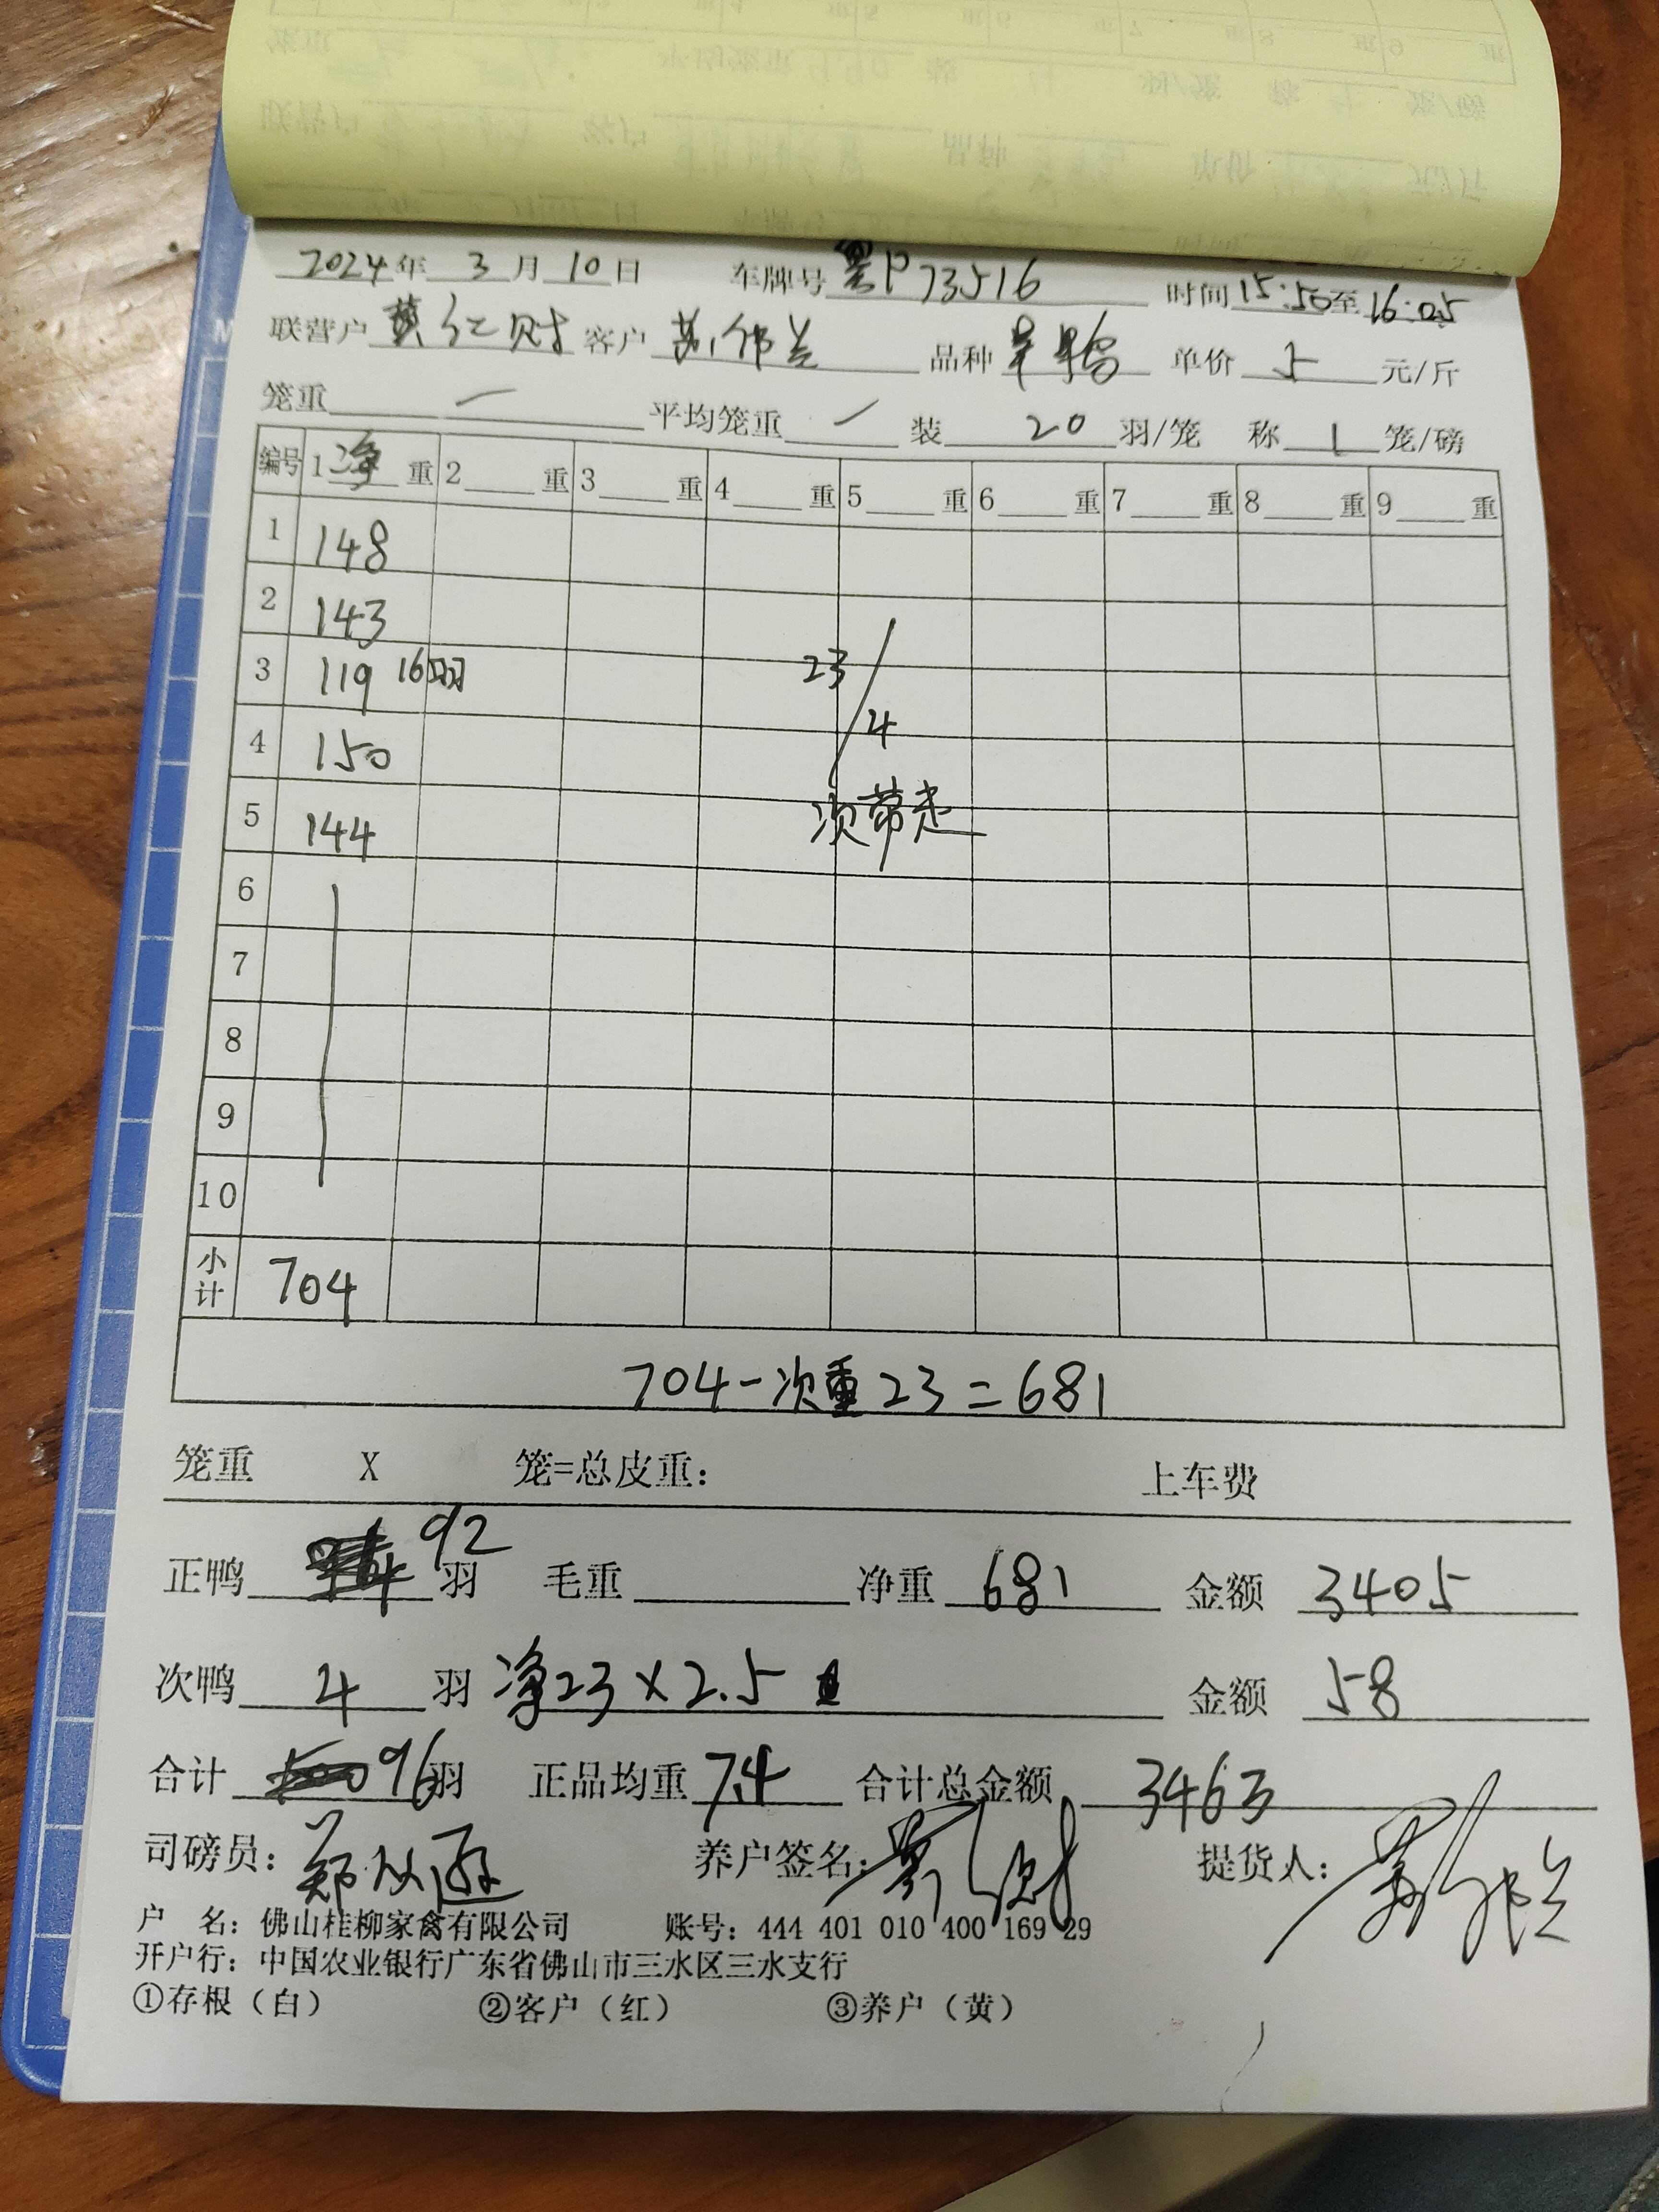 2024年 3 月 10 日 车牌号 P73516 时间 15:50 至 16:05
联营户 黄红财 客户 苏伟兰 品种 旱鸭 单价 5 元/斤
笼重 — 平均笼重 — 装 20 羽/笼 称 1 笼/磅
编号 1 净 重 2 重 3 重 4 重 5 重 6 重 7 重 8 重 9 重
1 148
2 143
3 119 16羽 23/4
4 150
5 144 次带走
6
7
8
9
10
小计 704
704-次重23=681
笼重 X 笼=总皮重: 上车费
正鸭 92 羽 毛重 净重 681 金额 3405
次鸭 4 羽 净23×2.5 金额 58
合计 96 羽 正品均重 7.4 合计总金额 3463
司磅员: 养户签名: 提货人:
户 名: 佛山桂柳家禽有限公司 账号: 444 401 010 400 169 29
开户行: 中国农业银行广东省佛山市三水区三水支行
①存根（白） ②客户（红） ③养户（黄）